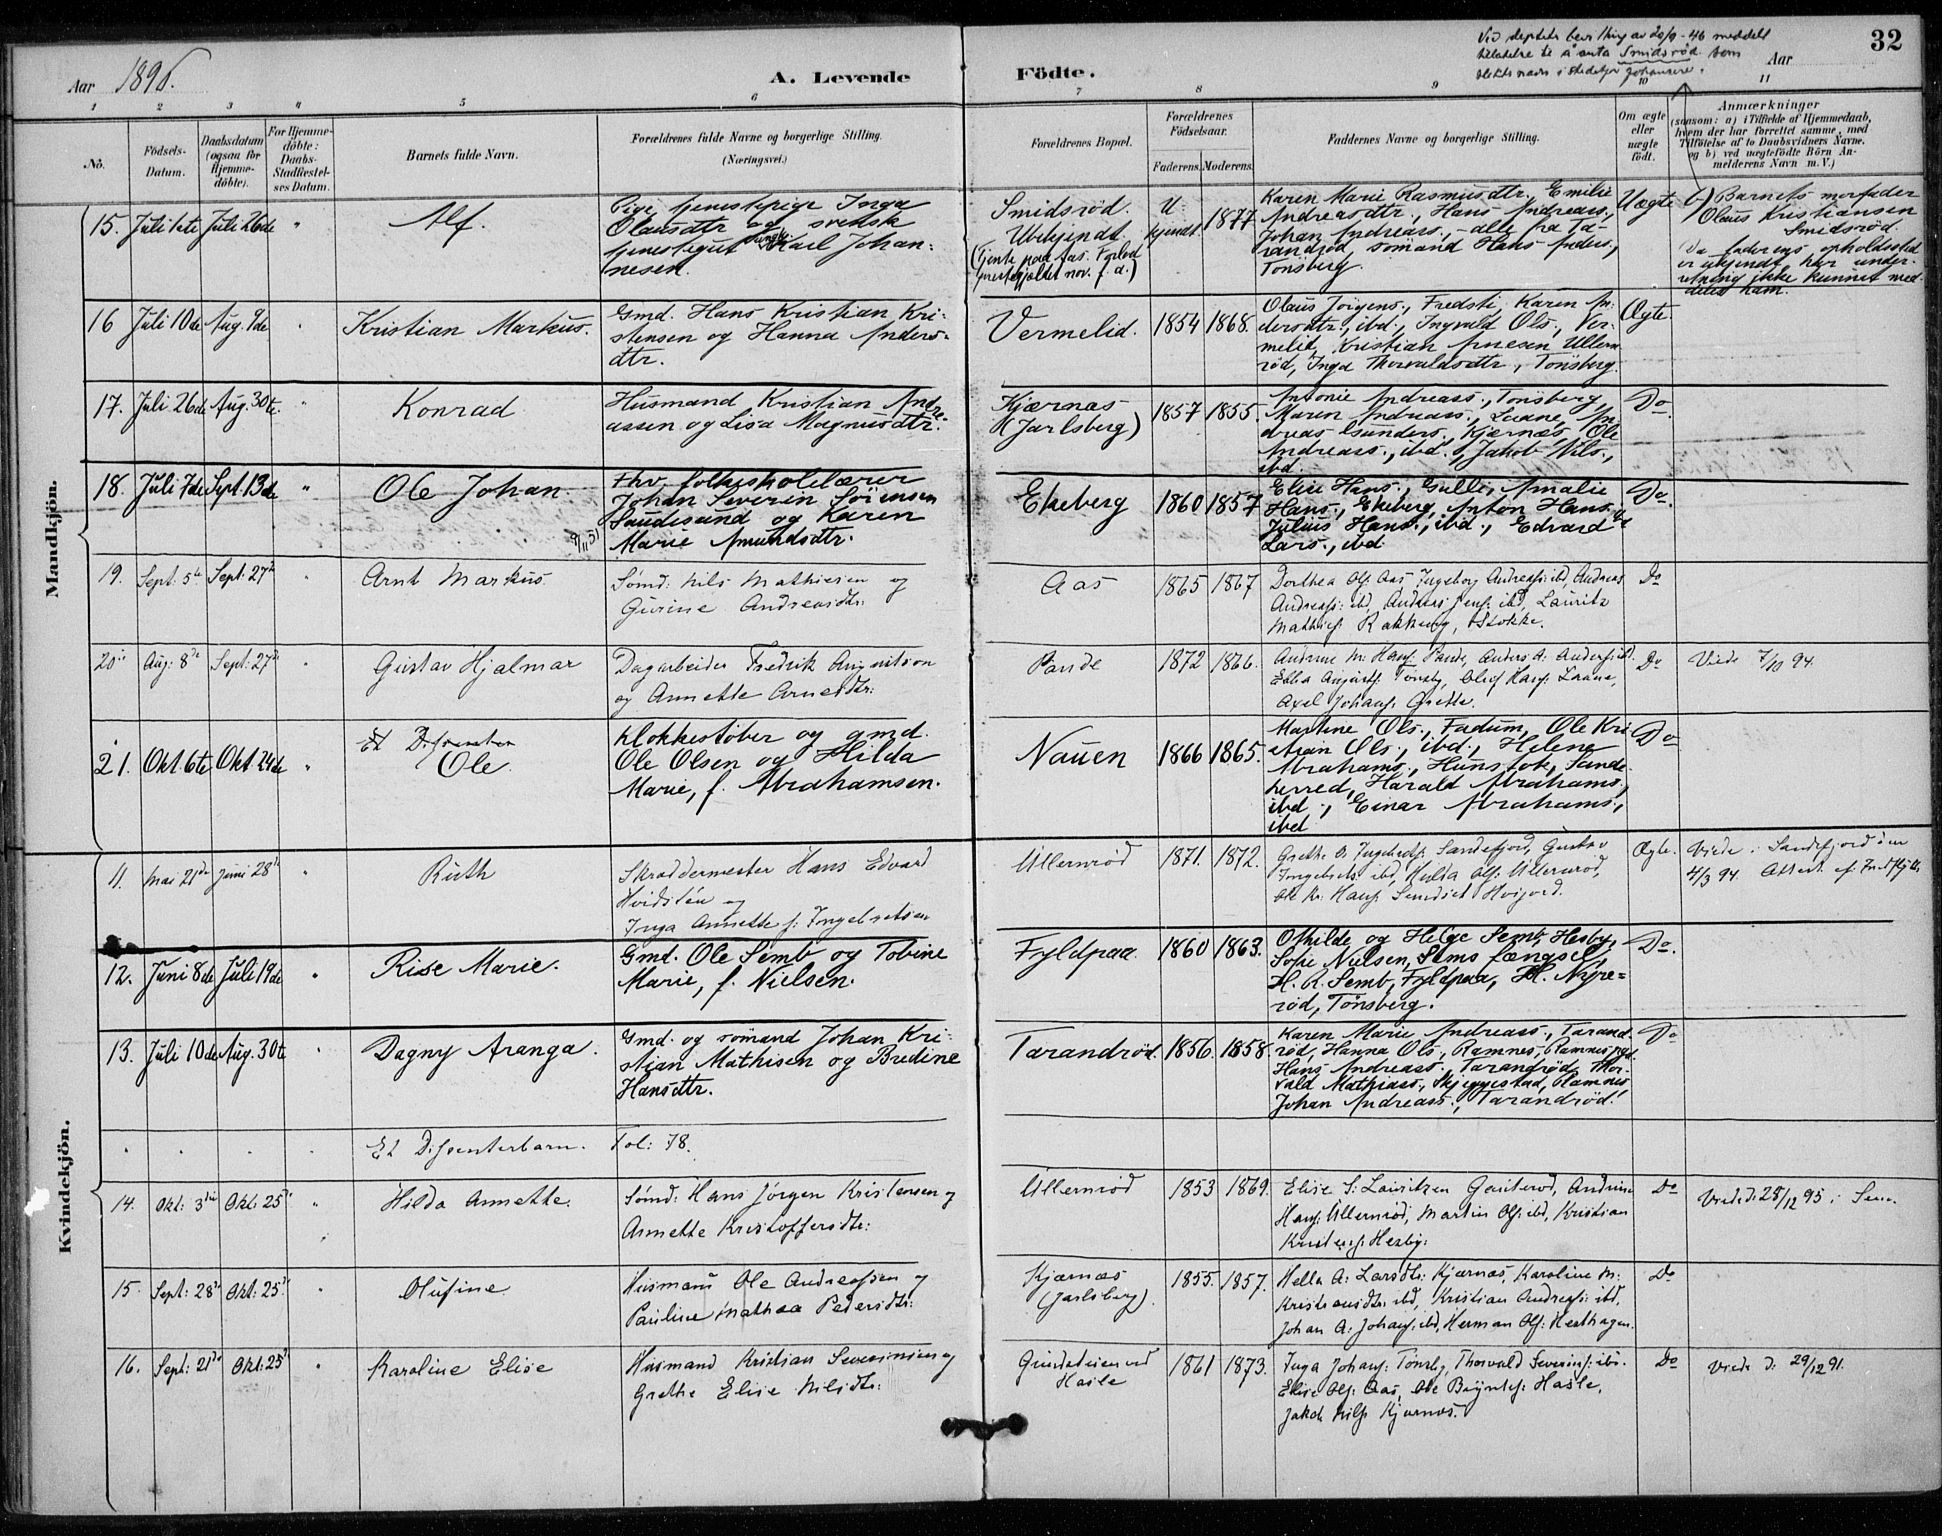 Ved deptets bevilling av 20/9-46 meddelt
tilatelse til å anta Smidsrød som
slektsnavn i stedetfor Johansen.
32
Aar 1896.
A. Levende Födte.
Aar
1 2 3 4 5 6 7 8 9 10 11
No.
Födsels-Datum.
Daabsdatum (ogsaa for Hjemmedöbte).
For Hjemmedöbte: Daabs-Stadfæstelses Datum.
Barnets fulde Navn.
Forældrenes fulde Navne og borgerlige Stilling. (Næringsvei.)
Forældrenes Bopæl.
Forældrenes Födselsaar.
Faderens. Moderens.
Faddernes Navne og borgerlige Stilling.
Om ægte eller uægte födt.
Anmærkninger
(saasom: a) i Tilfælde af Hjemmedaab,
hvem der har forrettet samme, med
Tilföielse af to Daabsvidners Navne.
og b) ved uægtefödte Börn An-
melderens Navn m. V.)
Mandkjön.
15. Juli 1ste Juli 26de " Alf.
Pige tjenestepige Inga
Olausdtr og svensk
tjenestegut ungk. Karl Johan-
nesen.
Smidsrød.
Ubekjendt.
(tjente paa Aas.
præstegjeldet nov. f. å.)
U-
kjendt 1877
Karen Marie Rasmusdtr, Emilie
Andreasdtr., Hans Andreass.,
Johan Andreass., - alle fra Ta-
randrød sömand Hans Anders.,
Tönsberg.
Uægte
b) Barnets morfader
Olaus Kristiansen
Smidsrød.
Da faderens opholdssted
er ukjendt, har under-
retning ikke kunnet med-
deles ham.
16 Juli 10de Aug. 9de " Kristian Markus.
Gmd. Hans Kristian Kri-
stensen og Hanna Anders-
dtr.
Vermelid. 1854 1868.
Olaus Jörgens., Fredsti, Karen An-
dersdtr., ibd., Ingvald Ols., Ver-
melid, Kristian Arnesen Ullern-
rød, Inga Thorvaldsdtr, Tönsberg.
Ægte.
17. Juli 26de Aug. 30te. " Konrad
Husmand Kristian Andre-
assen og Lisa Magnusdtr.
Kjærnæs
(Jarlsberg) 1857 1855.
Antonie Andreass., Tonsberg,
Maren Andreass., Laane, An-
dreas Gunders., Kjærnæs, Ole
Andreass., ibd., Jakob Nils.,
ibd.
Do
18. Juli 7de Sept. 13de " Ole Johan.
9/11 51
Fhv. folkeskolelærer
Johan Severin Sörensen
Saudesund og Karen
Marie Amundsdtr.
Ekeberg 1860 1857
Elise Hans., Gulli, Amalie
Hans., Ekeberg, Anton Hans.,
Julius Hans., ibd., Edvard
Lars., ibd.
Do.
19. Sept. 5te Sept: 27de " Arnt Markus
Sömd: Nils Mathisen og
Gurine Andreasdtr:
Aas 1865 1867
Dorthea Ols: Aas, Ingeborg Andreass: ibd, Andreas
Andreass: ibd, Anders Jens: ibd, Lauritz
Mathis: Rakkeng, Stokke.
Do
20de Aug: 8de Sept: 27de Gustav Hjalmar
Dagarbeider Fredrik Augustson
og Annette Arnesdtr:
Pande 1872 1866.
Andrine M: Hans: Pande, Anders A: Anders: ibd.
Ebba August: Tönsb., Oluf Hans: Laane,
Axel Johans: Grette.
Do Viede 7/10 94.
21. Okt 6te Okt 24de " Et Dissenter
Ole.
Klokkestöber og gmd.
Ole Olsen og Hilda
Marie, f. Abrahamsen.
Nauen 1866 1865.
Martine Ols., Fadum, Ole Kri-
stian Ols., ibd., Helene
Abrahams., Hunstok, Sande-
herred, Harald Abrahams.,
ibd., Einar Abrahams.,
ibd
Do
Kvindekjön.
11. Mai 21de Juni 28de " Ruth
Skræddermester Hans Edvard
Hvidstén og
Inga Annette f: Ingebretsen
Ullernrød 1871. 1872.
Grethe O. Ingebrets: Sandefjord, Gustav
Ingebrets: ibd, Hulda Ols: Ullernrød,
Ole Kr: Hans: Sundset Hvijord.
Ægte. Viede i Sandefjord den
4/3 94. Attest af
12. Juni 8de Juli 19de " Rise Marie.
Gmd. Ole Semb og Tobine
Marie, f. Nielsen.
Fyldpaa. 1860 1863.
Othilde og Helge Semb, Hesby,
Sofie Nielsen, Sems fængsel,
H. A. Semb, Fyldpaa, H. Nyre-
rød, Tønsberg.
Do.
13. Juli 10de Aug. 30te " Dagny Aranga.
Gmd. og sømand Johan Kri-
stian Mathisen og Bredine
Hansdtr.
Tarandrød. 1856. 1858.
Karen Marie Andreass., Tarand-
rød, Hanna Ols., Ramnes, Ramnes pgd.
Hans Andreass., Tarandrød, Thor-
vald Mathiass., Skjeggestad, Ramnes
Johan Andreass., Tarandrød.
Do
Et Dissenterbarn. Fol: 78.
14. Okt: 3die Okt: 25de " Hilda Annette.
Sömd: Hans Jörgen Kristensen og
Annette Kristoffersdtr:
Ullernrød 1853 1869.
Elise S: Lauritzen Gauterød, Andrine
Hans: Ullernrød, Martin Ols: ibd, Kristian
Kristens: Hesby:
Do Viede d: 28/12 95 i Sem.
15. Sept: 28de Okt: 25de " Olufine
Husmand Ole Andreassen og
Pauline Mathea Pedersdtr:
Kjærnæs
(Jarlsberg). 1855. 1857.
Hella A: Larsdtr: Kjærnæs, Karoline M:
Kristiansdtr: ibd, Kristian Andreass: ibd,
Johan A: Johans: ibd, Herman Ols: Hesthagen.
Do
16. Sept: 21de Okt: 25de " Karoline Elise
Husmand Kristian Severinsen og
Grethe Elise Nilsdtr:
ved
Hasle 1861 1873.
Inga Johans: Tönsb, Thorvald Severins: ibd.
Elise Ols: Aas, Ole Brynhs: Hasle,
Jakob Nils: Kjærnæs.
Do Viede d: 29/12 91.